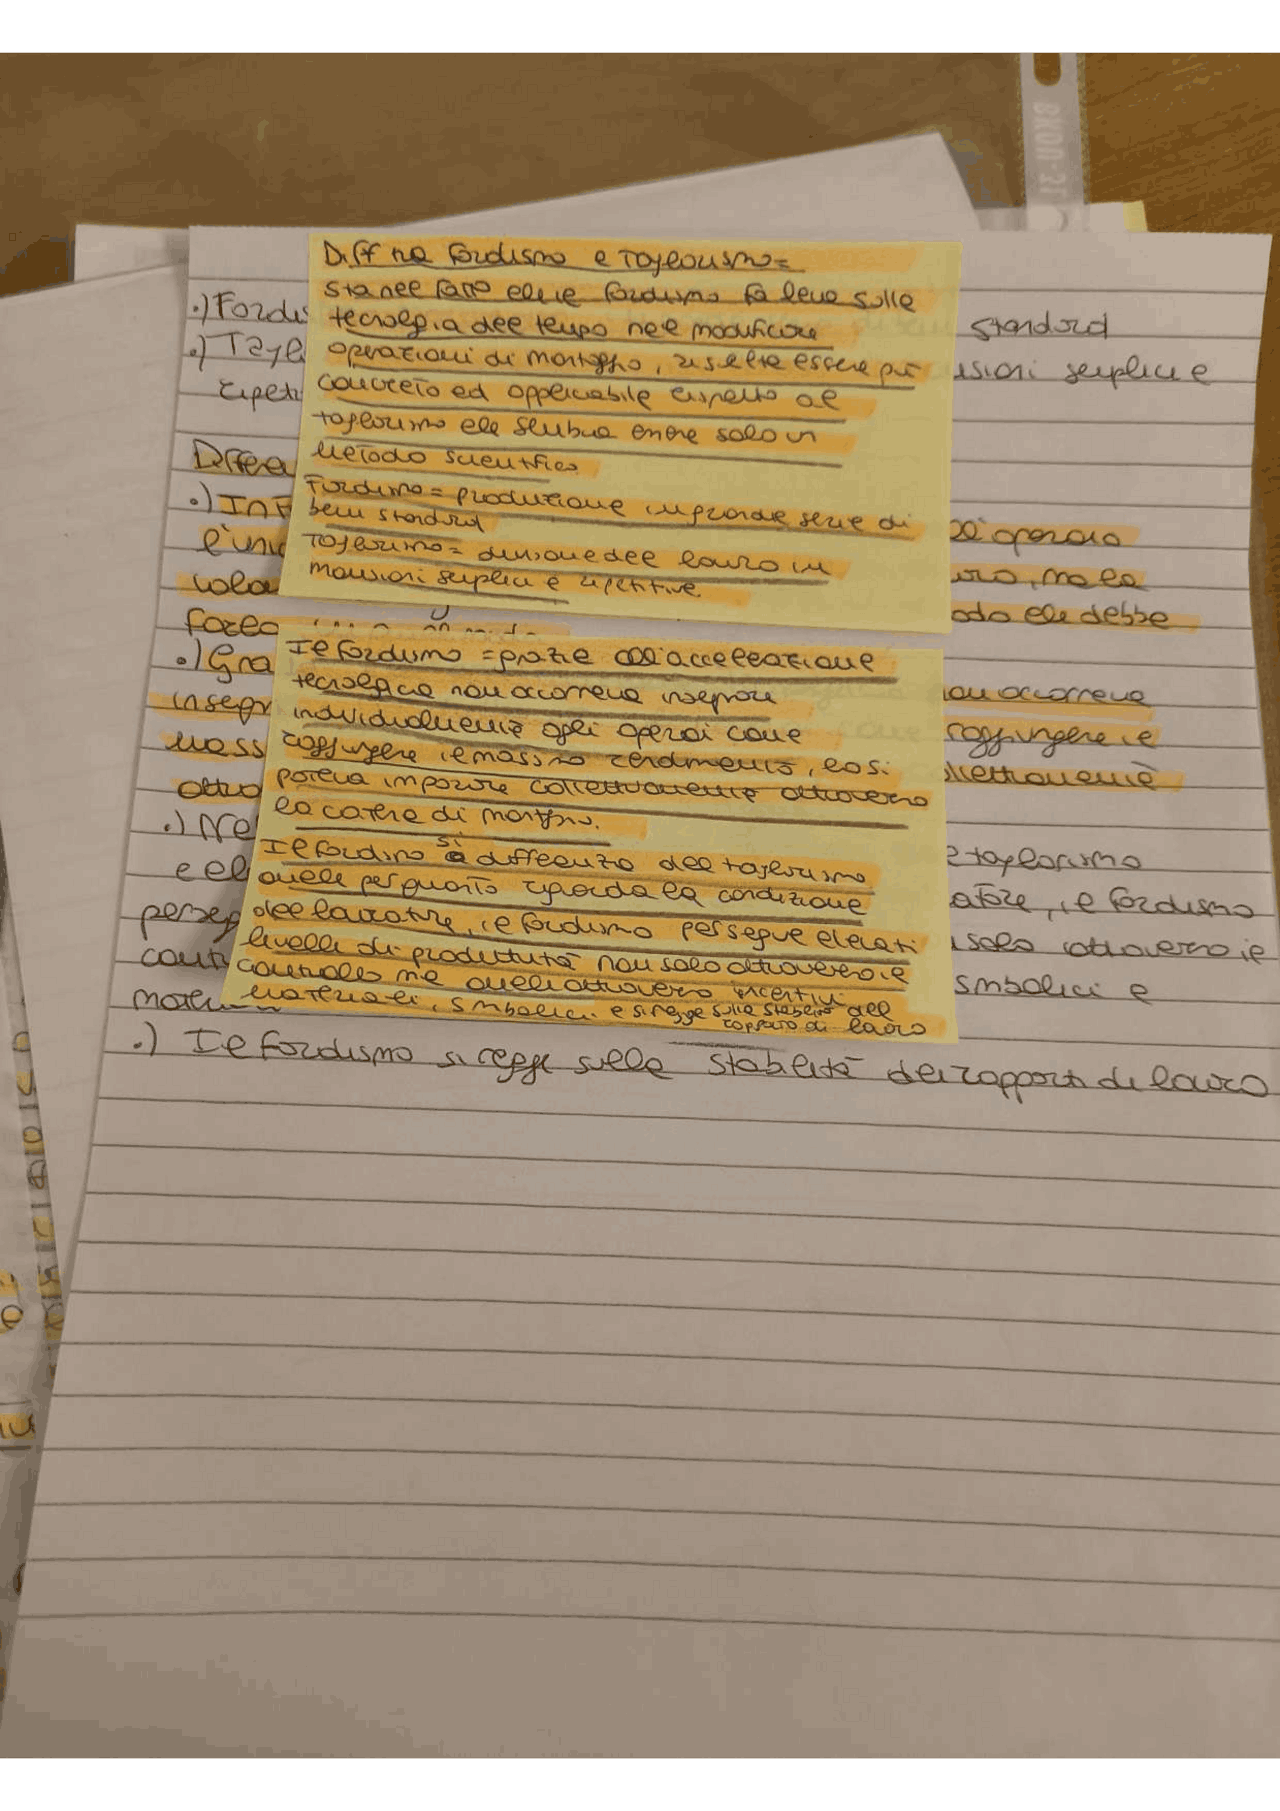 Diff tra fordismo e Taylorismo=
sta nel fatto che il fordismo fa leva sulle
tecnologia del tempo nel modificare
operazioni di montaggio, risulta essere più
concreto ed applicabile rispetto al
taylorismo che sembra essere solo un
metodo scientifico.
Fordismo = produzione in grande serie di
beni standard
Taylorismo = divisione del lavoro in
mansioni semplici e ripetitive.
Il fordismo = grazie all'accelerazione
tecnologica non occorreva insegnare
individualmente agli operai come
raggiungere il massimo rendimento, lo si
poteva imporre collettivamente attraverso
la catena di montaggio.
Il fordismo si differenzia dal taylorismo
anche per quanto riguarda la condizione
del lavoratore, il fordismo persegue elevati
livelli di produttività non solo attraverso il
controllo ma anche attraverso incentivi
materiali, simbolici e si regge sulla stabilità del
rapporto di lavoro
.) Fordis
standard
.) Tayl
nsioni semplici e
ripeti
Differe
.) Inf
all'operaio
l'uni
voro, ma la
volo
odo che debba
forza
.) Gra
non occorreva
insegn
raggiungere il
mass
collettivamente
attra
.) Nel
e taylorismo
e el
atore, il fordismo
perseg
solo attraverso il
cont
simbolici e
mater
.) Il fordismo si regge sulla stabilità dei rapporti di lavoro
BRON-21